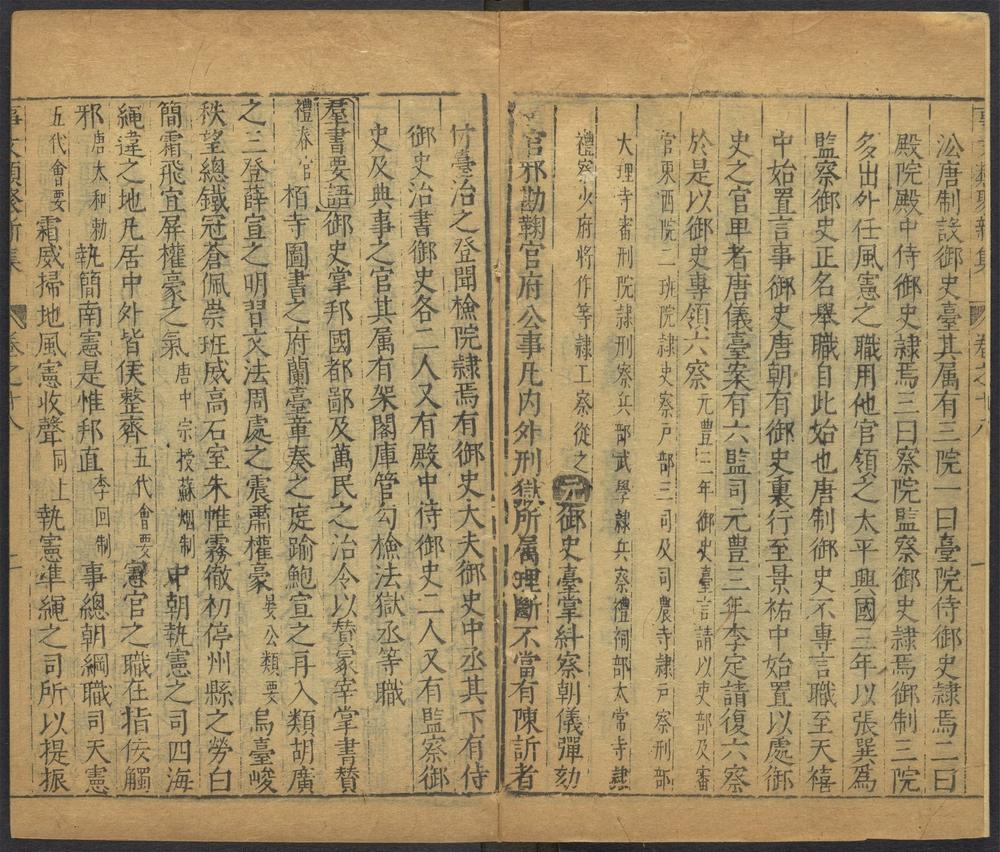 沿唐制設御史臺其属有三院一曰臺院侍御史隷焉二曰
殿院殿中侍御史隷焉三曰察院監察御史隷焉御制三院
多出外任風憲之職用他官領之太平興國三年以張巽為
監察御史正名舉職自此始也唐制御史不專言職至天禧
中始置言事御史唐朝有御史裏行至景祐中始置以處御
史之官卑者唐儀臺案有六監司元豊三年李定請復六察
於是以御史專領六察元豊二年御史臺言請以吏部及審
官東西院二班院隷史察戸部三司及司農寺隷戸察刑部
大理寺審刑院隷刑察兵部武學隷兵察禮祠部太常寺隷
禮察少府將作等隷工察從之元御史臺掌糾察朝儀彈劾
官邪勘鞫官府公事凡内外刑獄所属理斷不當有陳訢者
付臺治之登聞檢院隷焉有御史大夫御史中丞其下有侍
御史治書御史各二人又有殿中侍御史二人又有監察御
史及典事之官其属有架閣庫管勾檢法獄丞等職
羣書要語御史掌邦國都鄙及萬民之治令以賛冢宰掌書賛
禮春官栢寺圖書之府蘭臺章奏之庭踰鮑宣之再入類胡廣
之三登薛宣之明習文法周處之震肅權豪晏公類要烏臺峻
秩望總鐵冠蒼佩崇班威高石室朱帷霧徹初停州縣之勞白
簡霜飛冝屏權豪之氣唐中宗授蘇烟制中朝執憲之司四海
繩違之地凡居中外皆俟整齊五代會要憲官之職在指佞觸
邪唐太和勅執簡南憲是惟邦直李回制事總朝綱職司天憲
五代會要霜威掃地風憲收聲同上執憲準繩之司所以提振
事文類聚新集
卷之十八